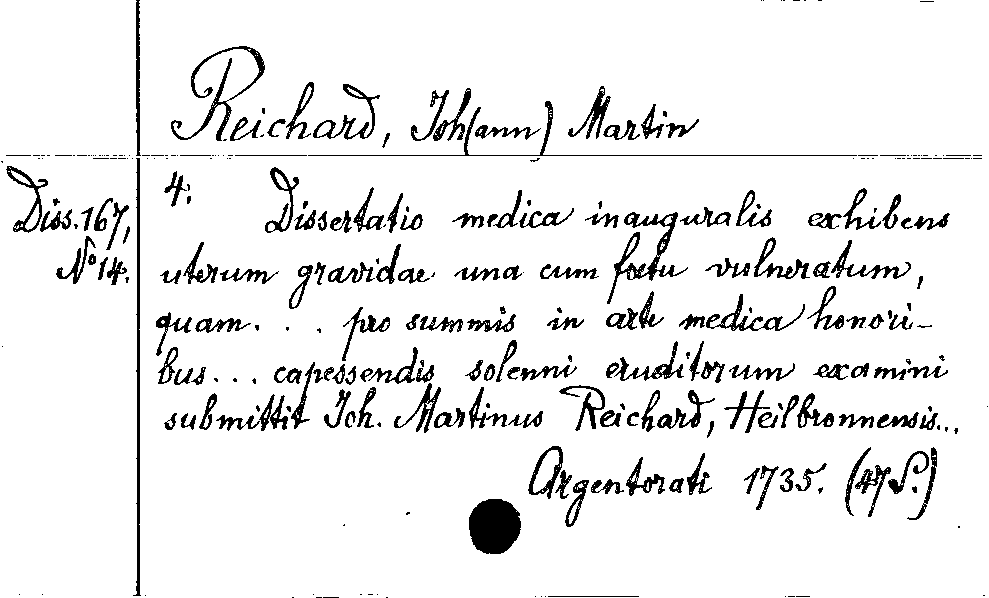 Reichard, Joh(ann) Martin
Diss. 167,
No 14.
4.
Dissertatio medica inauguralis exhibens
uterum gravidae una cum foetu vulneratum,
quam . . . pro summis in arte medica honori-
bus . . . capessendis solenni eruditorum examini
submittit Joh. Martinus Reichard, Heilbronnensis...
Argentorati 1735. (47 S.)